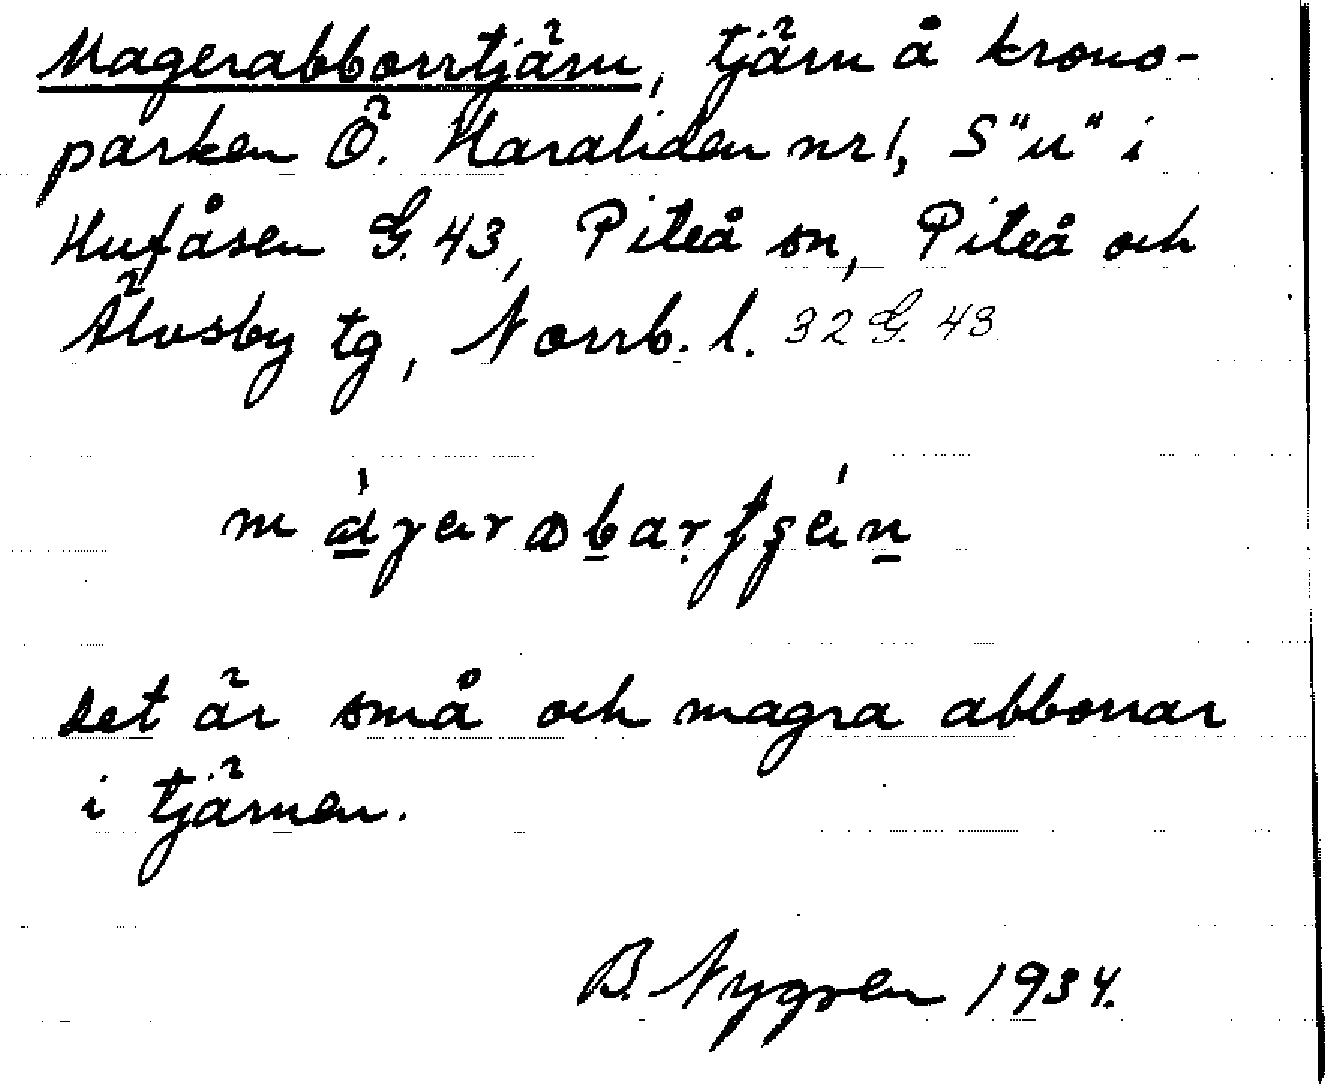 Magerabborrtjärn, tjärn å krono-
parken Ö. Haraliden nr 1, S "u" i
Hufåsen G. 43, Piteå sn, Piteå och
Älvsby tg, Norrb. l. 32 G. 43
Det är små och magra abborrar
i tjärnen.
B. Nygren 1934.